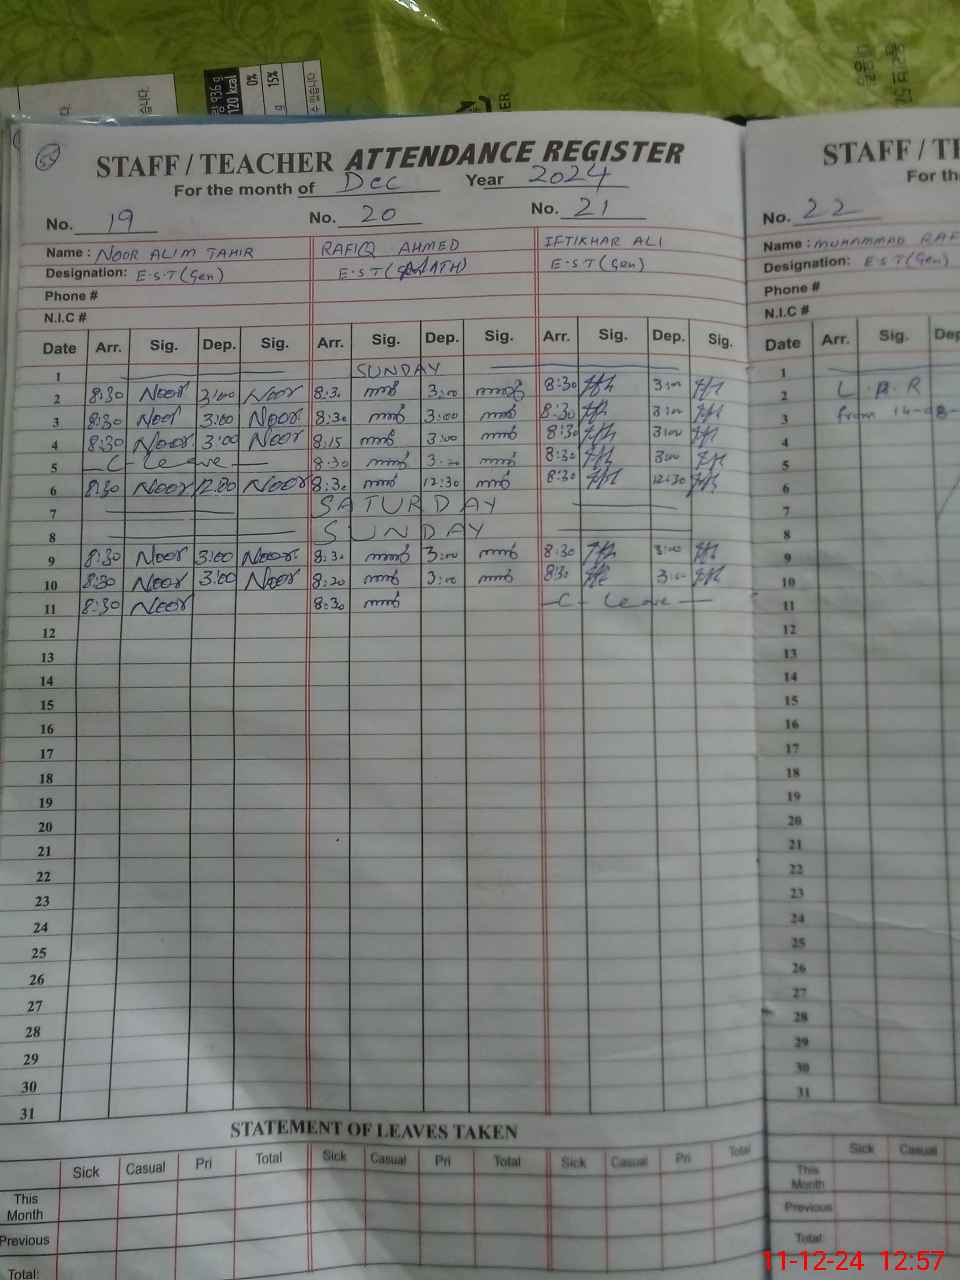 936 g
120 kcal
0%
15%
g
55
STAFF / TEACHER ATTENDANCE REGISTER
For the month of Dec Year 2024
No. 19 No. 20 No. 21
Name : NOOR ALIM TAHIR RAFIQ AHMED IFTIKHAR ALI
Designation: E.S.T (Gen) E.S.T (MATH) E.S.T (Gen)
Phone #
N.I.C #
Date Arr. Sig. Dep. Sig. Arr. Sig. Dep. Sig. Arr. Sig. Dep. Sig.
1 SUNDAY
2 8:30 Noor 3:00 Noor 8:30 3:00 8:30 3:00
3 8:30 Noor 3:00 Noor 8:30 3:00 8:30 3:00
4 8:30 Noor 3:00 Noor 8:15 3:00 8:30 3:00
5 C - Leave 8:30 3:00 8:30 3:00
6 8:30 Noor 12:30 Noor 8:30 12:30 8:30 12:30
7 SATURDAY
8 SUNDAY
9 8:30 Noor 3:00 Noor 8:30 3:00 8:30 3:00
10 8:30 Noor 3:00 Noor 8:20 3:00 8:30 3:00
11 8:30 Noor 8:30 C - Leave
12
13
14
15
16
17
18
19
20
21
22
23
24
25
26
27
28
29
30
31
STATEMENT OF LEAVES TAKEN
Sick Casual Pri Total Sick Casual Pri Total Sick Casual Pri Total
This Month
Previous
Total:
STAFF / TE
For the
No. 22
Name : MUHAMMAD RAF
Designation: E.S.T (Gen)
Phone #
N.I.C #
Date Arr. Sig. Dep
1
2 L.P.R
3 from 14-08-
4
5
6
7
8
9
10
11
12
13
14
15
16
17
18
19
20
21
22
23
24
25
26
27
28
29
30
31
Sick Casual
This Month
Previous
Total
11-12-24 12:57